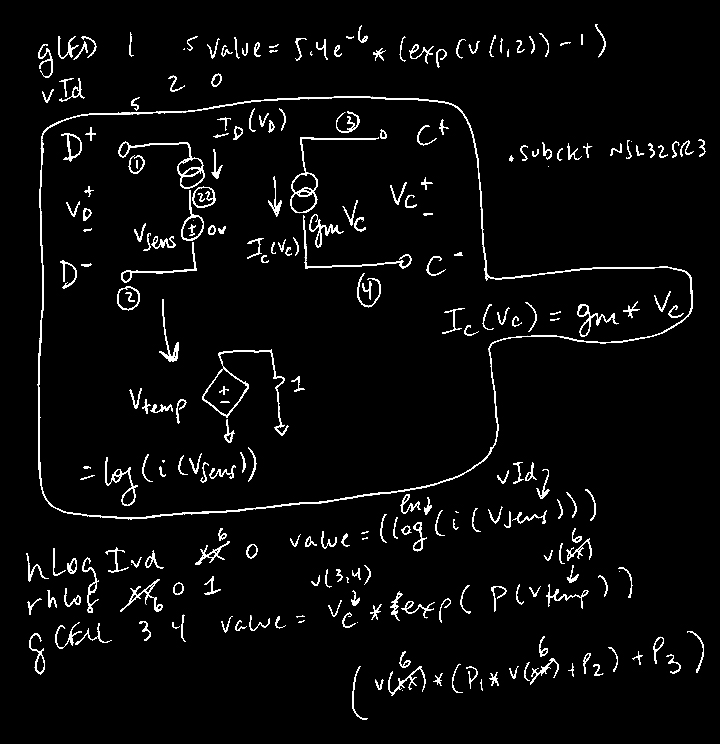 gLED 1 .5 value = 5.4e^-6 * (exp(v(1,2)) - 1)
vId 5 2 0
D+ ① I_D(V_D) ③ C+
.subckt NSL32SR3
V_D + - ㉒ V_C + -
Vsens ± 0v I_c(V_c) gm V_c
D- ② ④ C-
I_c(V_c) = gm * V_c
Vtemp ± 1
= log(i(Vsens))
vId
ln
hLogIvd 6 0 value = (log(i(Vsens)))
rhlog 6 0 1 v(3,4) v(6)
gCELL 3 4 value = V_c * exp(P(Vtemp))
(v(6) * (P1 * v(6) + P2) + P3)